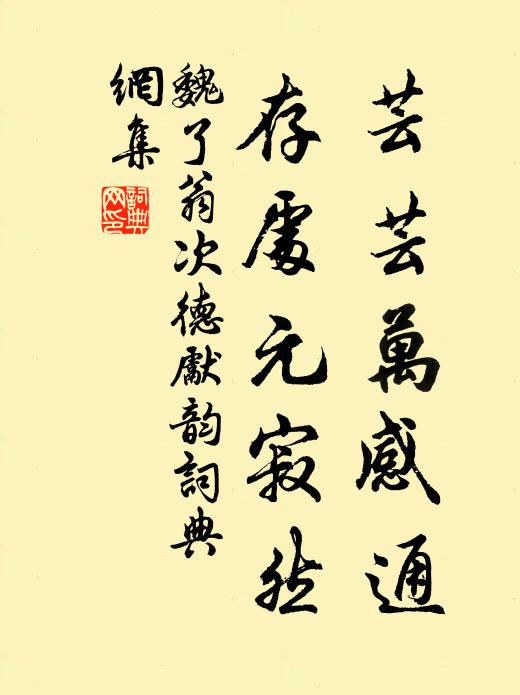 芸芸萬感通
存處元寂然
魏了翁次德獻韵詞典
網集
詞典
网印